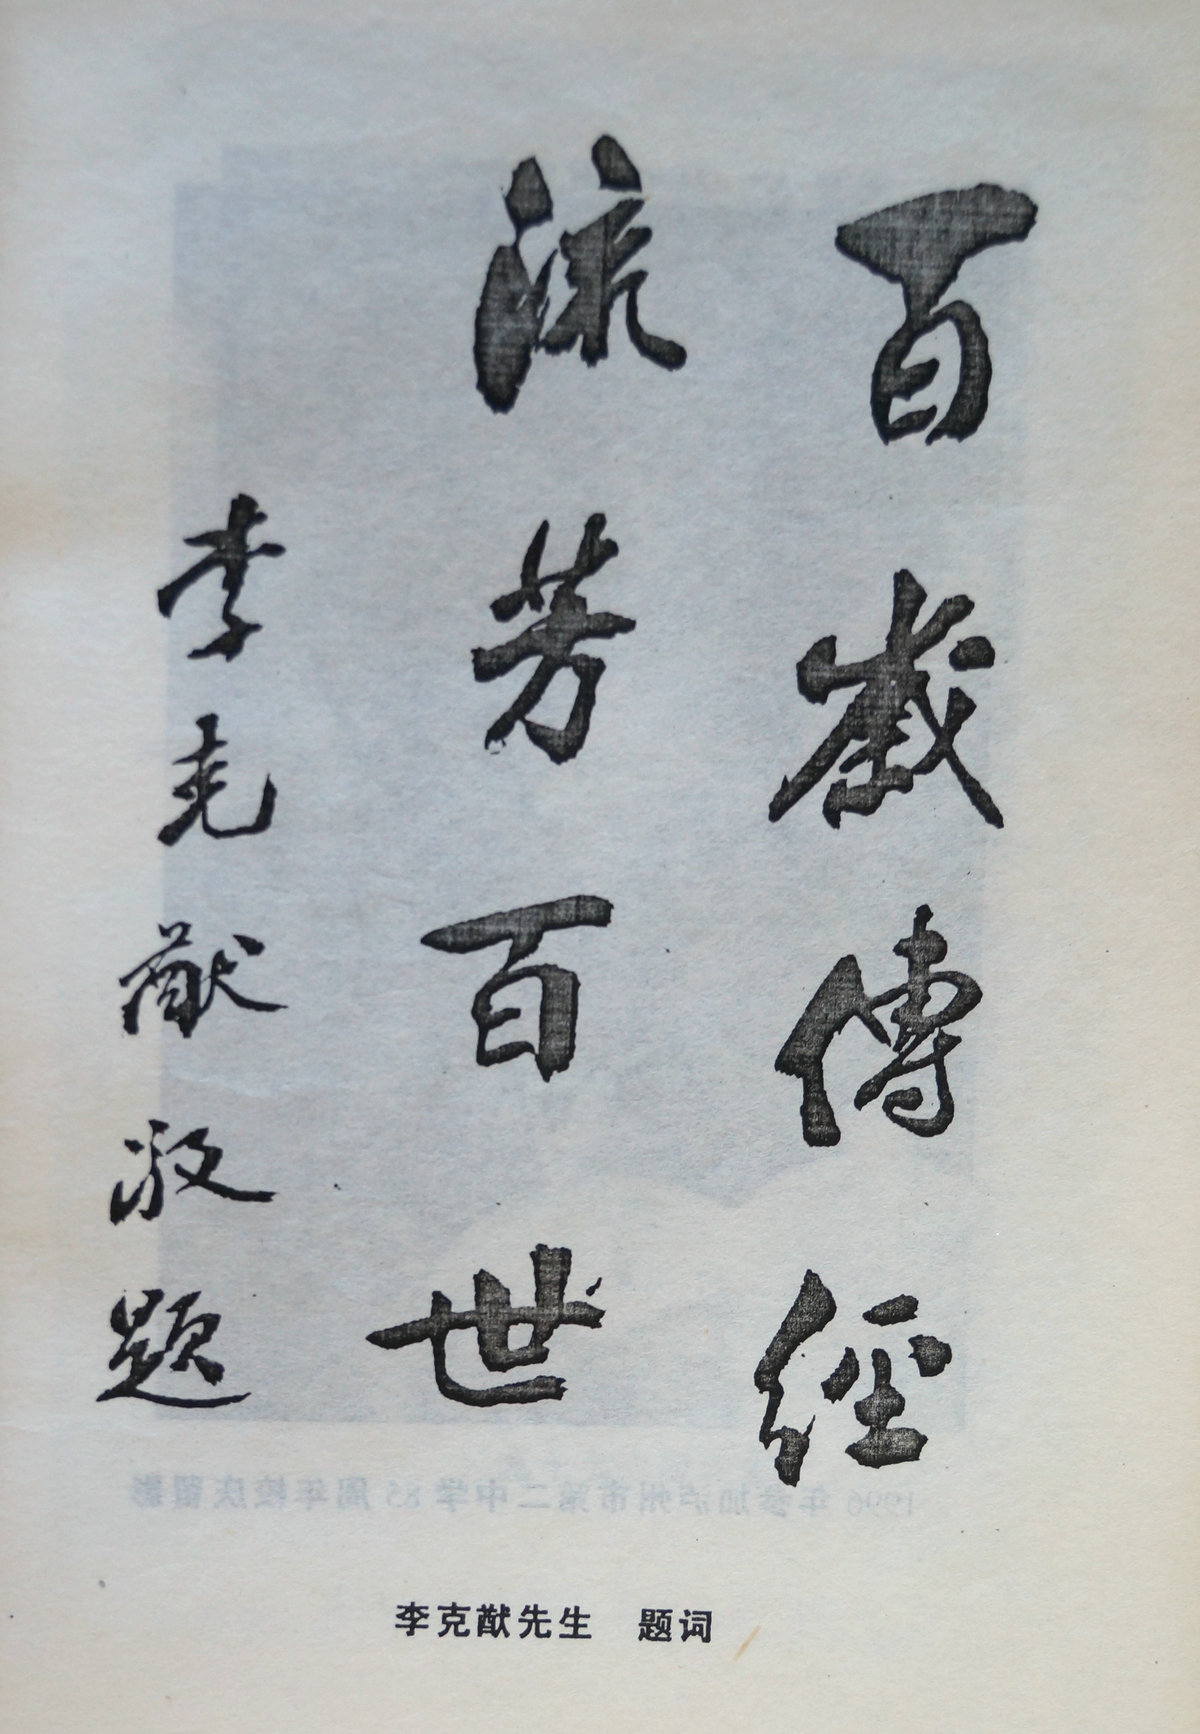 百歲傳經
流芳百世
李克猷敬題
1996年参加泸州市第二中学85周年校庆留影
李克猷先生 题词